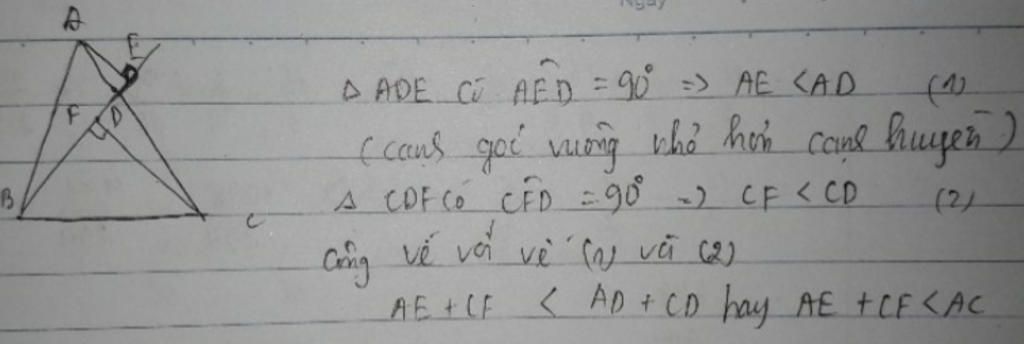 Ngày
A
E
F D
B
C
Δ ADE Có AÊD = 90° => AE < AD (1)
(cạnh góc vuông nhỏ hơn cạnh huyền)
Δ CDF Có CF̂D = 90° => CF < CD (2)
Cộng vế với vế (1) và (2)
AE + CF < AD + CD hay AE + CF < AC